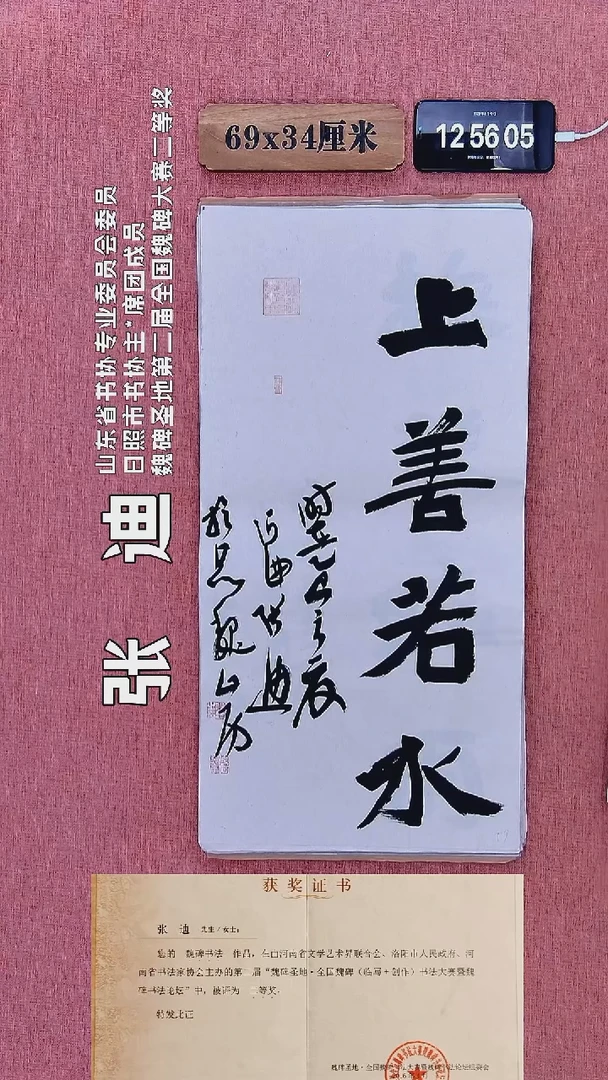 69x34厘米
12 56 05
山东省书协专业委员会委员
日照市书协主席团成员
魏碑圣地第二届全国魏碑大赛二等奖
张 迪
上善若水
获奖证书
张 迪 先生/女士:
您的 魏碑书法 作品,在由河南省文学艺术界联合会、洛阳市人民政府、河
南省书法家协会主办的第二届“魏碑圣地·全国魏碑(临写+创作)书法大赛暨魏
碑书法论坛”中,被评为 二等奖.
特发此证